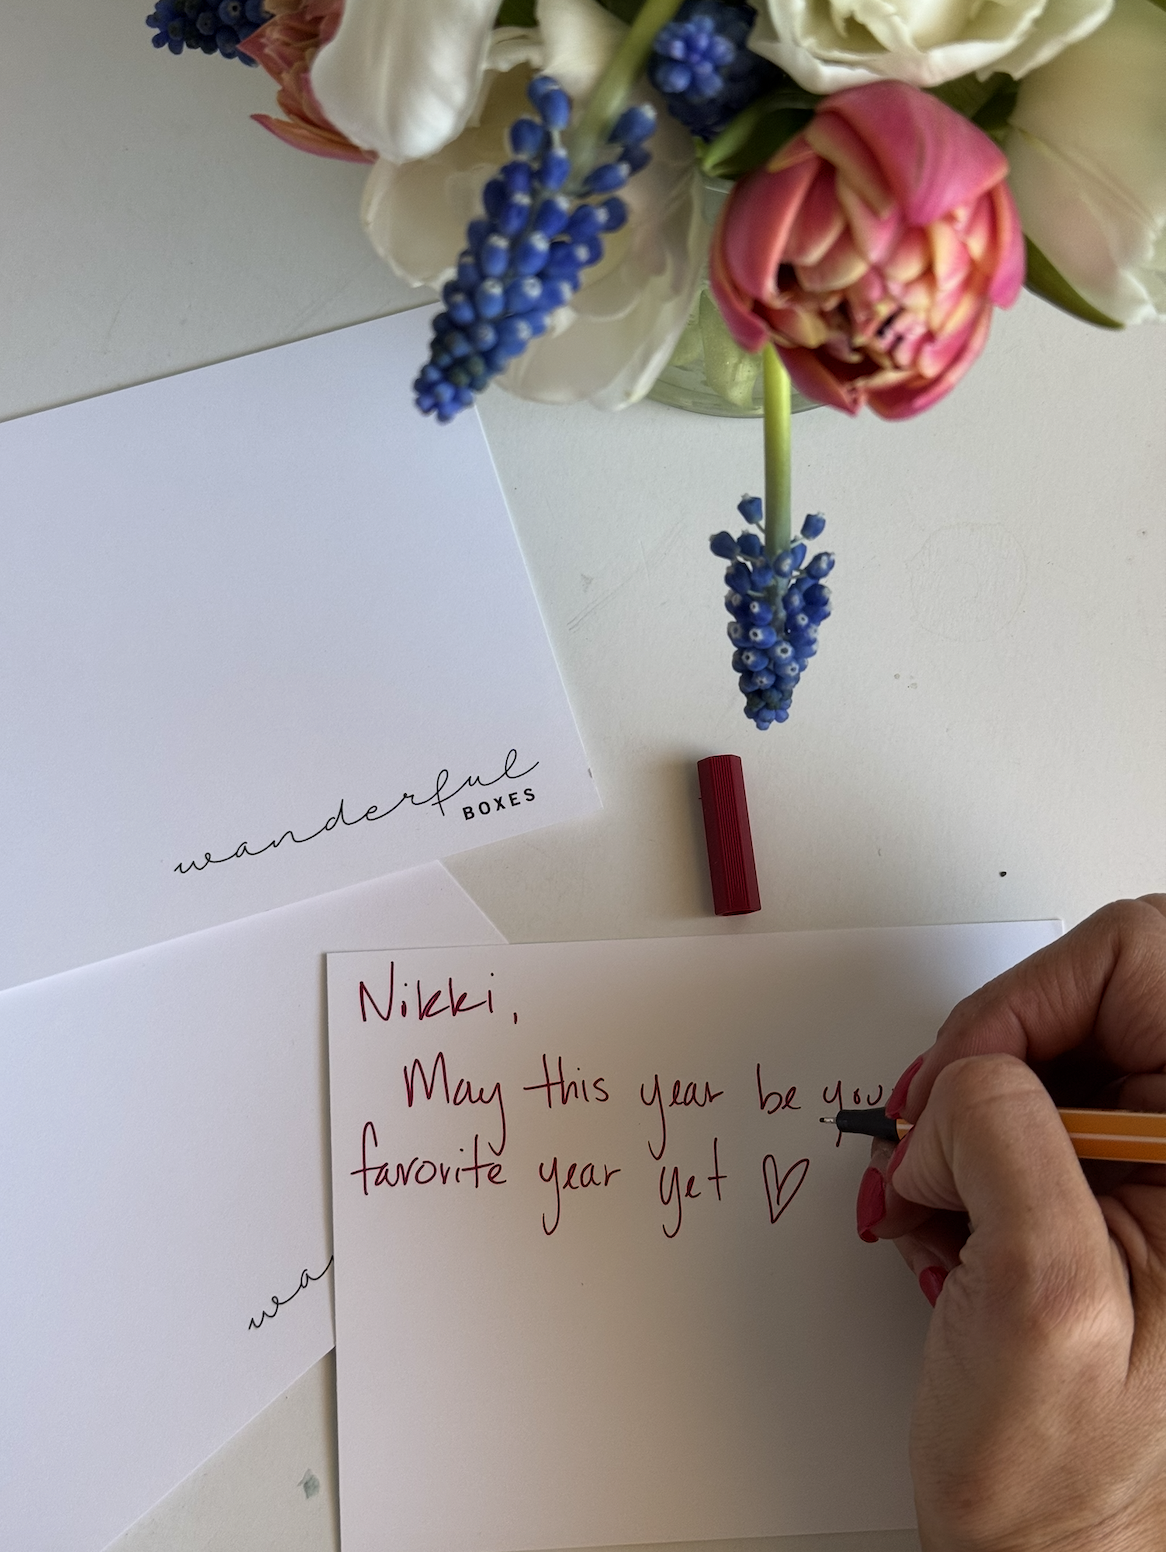 wanderful
BOXES
Nikki,
May this year be your
favorite year yet ♡
wa